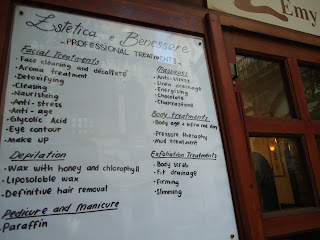 Estetica e Benessere
PROFESSIONAL TREATMENTS
Facial Treatments
- Face cleaning and décolleté
- Aroma treatment
- Detoxifying
- Cleasing
- Nourishing
- Anti-stress
- Anti-age
- Glycolic Acid
- Eye contour
- Make up
Depilation
- Wax with honey and chlorophyll
- Liposoloble wax
- Definitive hair removal
Pedicure and Manicure
Paraffin
Massages
- Anti-stress
- Linfo drainage
- Energizing
- Chocolate
Body Treatments
- Body age + infra red ray
- Pressure therapy
- Mud treatment
Exfoliation Treatments
- Body scrub
- Fit drainage
- Firming
- Slimming
Emy